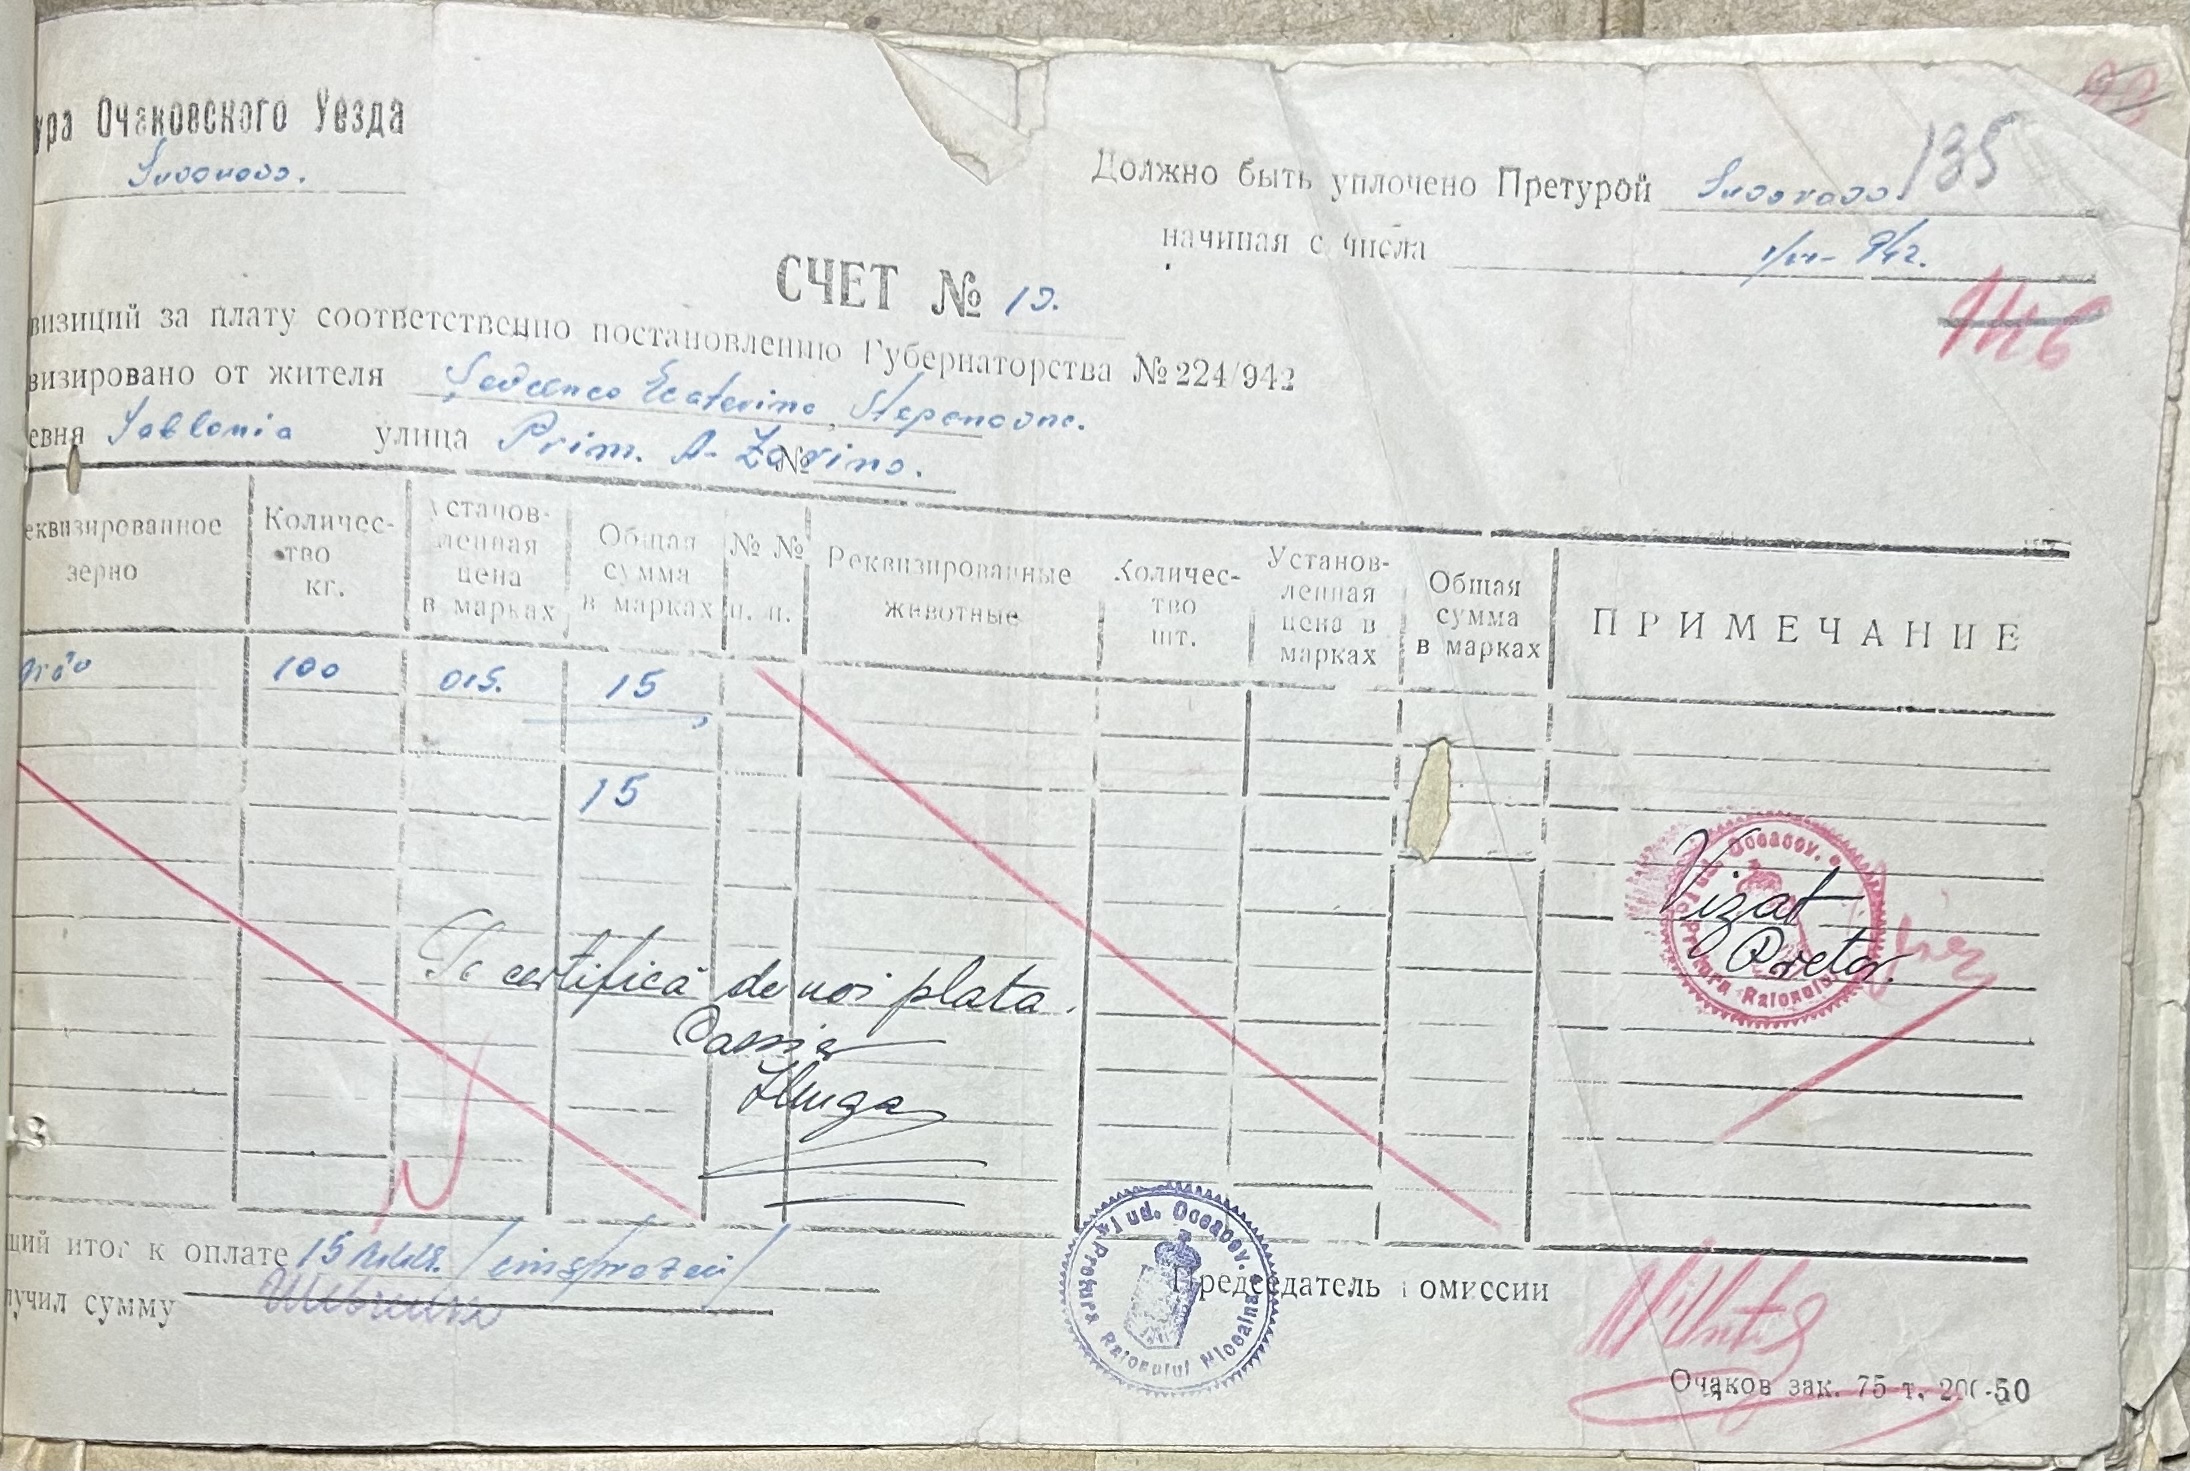 ура Очаковского Уезда
Suvorovo.
135
Должно быть уплочено Претурой Suvorovo
начиная с числа 942.
146
СЧЕТ № 10.
визиций за плату соответственно постановлению Губернаторства № 224/942
визировано от жителя Ecaterina Stepanovna.
евня Iablonia улица Prim. A- Zarino. №
еквизированное зерно
Количес-тво кг.
Установ-ленная цена в марках
Общая сумма в марках
№ № п. п.
Реквизированные животные
Количес-тво шт.
Установ-ленная цена в марках
Общая сумма в марках
ПРИМЕЧАНИЕ
grâu 100 015. 15
15
Jud. Oceacov.
Pretura Raionului
Vizat
Pretor
Se certifică de noi plata.
Casier
щий итог к оплате 15 /cinsprezeci/
лучил сумму
Jud. Oceacov.
Pretura Raionului
Председатель комиссии
Очаков зак. 75 т. 200-50